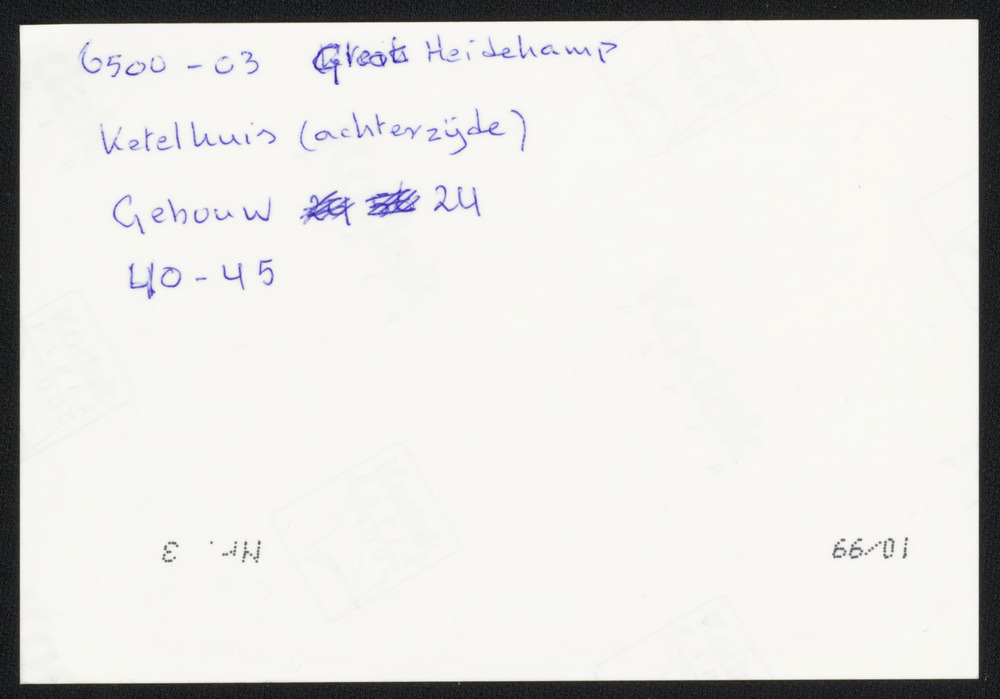 6500-03 Groot Heidekamp
Ketelhuis (achterzijde)
Gebouw 24
40-45
Nr. 3
10/99